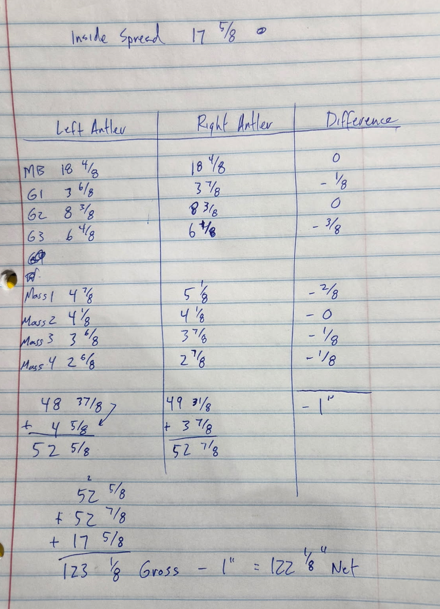 Inside Spread 17 5/8
Left Antler Right Antler Difference
MB 18 4/8 18 4/8 0
G1 3 6/8 3 7/8 - 1/8
G2 8 3/8 8 3/8 0
G3 6 4/8 6 - 3/8
Mass 1 4 7/8 5 1/8 - 2/8
Mass 2 4 1/8 4 1/8 - 0
Mass 3 3 6/8 3 7/8 - 1/8
Mass 4 2 6/8 2 7/8 - 1/8
48 37/8 49 31/8 - 1"
+ 4 5/8 + 3 7/8
52 5/8 52 7/8
2
52 5/8
+ 52 7/8
+ 17 5/8
123 1/8 Gross - 1" = 122 1/8" Net